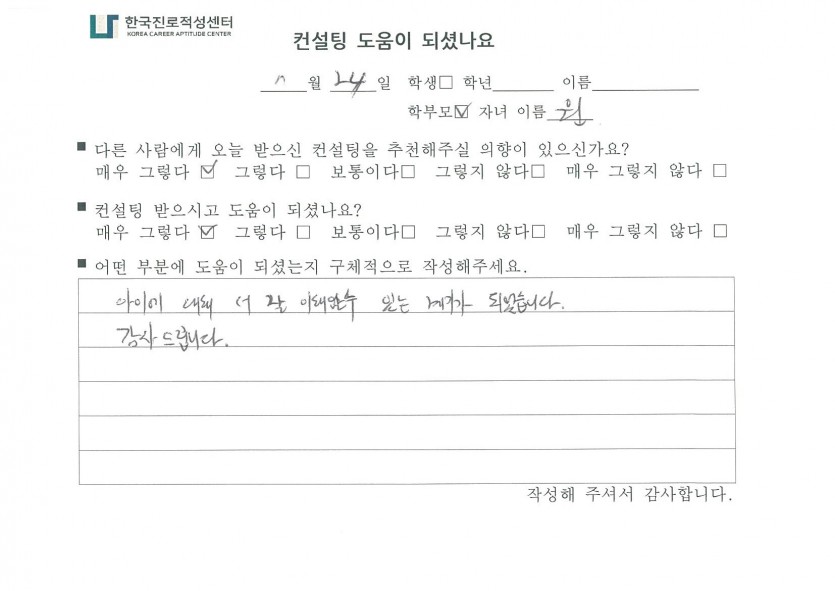 한국진로적성센터
KOREA CAREER APTITUDE CENTER
컨설팅 도움이 되셨나요
월 24 일 학생□ 학년 이름
학부모☑ 자녀 이름 원
■ 다른 사람에게 오늘 받으신 컨설팅을 추천해주실 의향이 있으신가요?
매우 그렇다 ☑ 그렇다 □ 보통이다□ 그렇지 않다□ 매우 그렇지 않다 □
■ 컨설팅 받으시고 도움이 되셨나요?
매우 그렇다 ☑ 그렇다 □ 보통이다□ 그렇지 않다□ 매우 그렇지 않다 □
■ 어떤 부분에 도움이 되셨는지 구체적으로 작성해주세요.
아이에 대해서 잘 이해할수 있는 계기가 되었습니다.
감사드립니다.
작성해 주셔서 감사합니다.